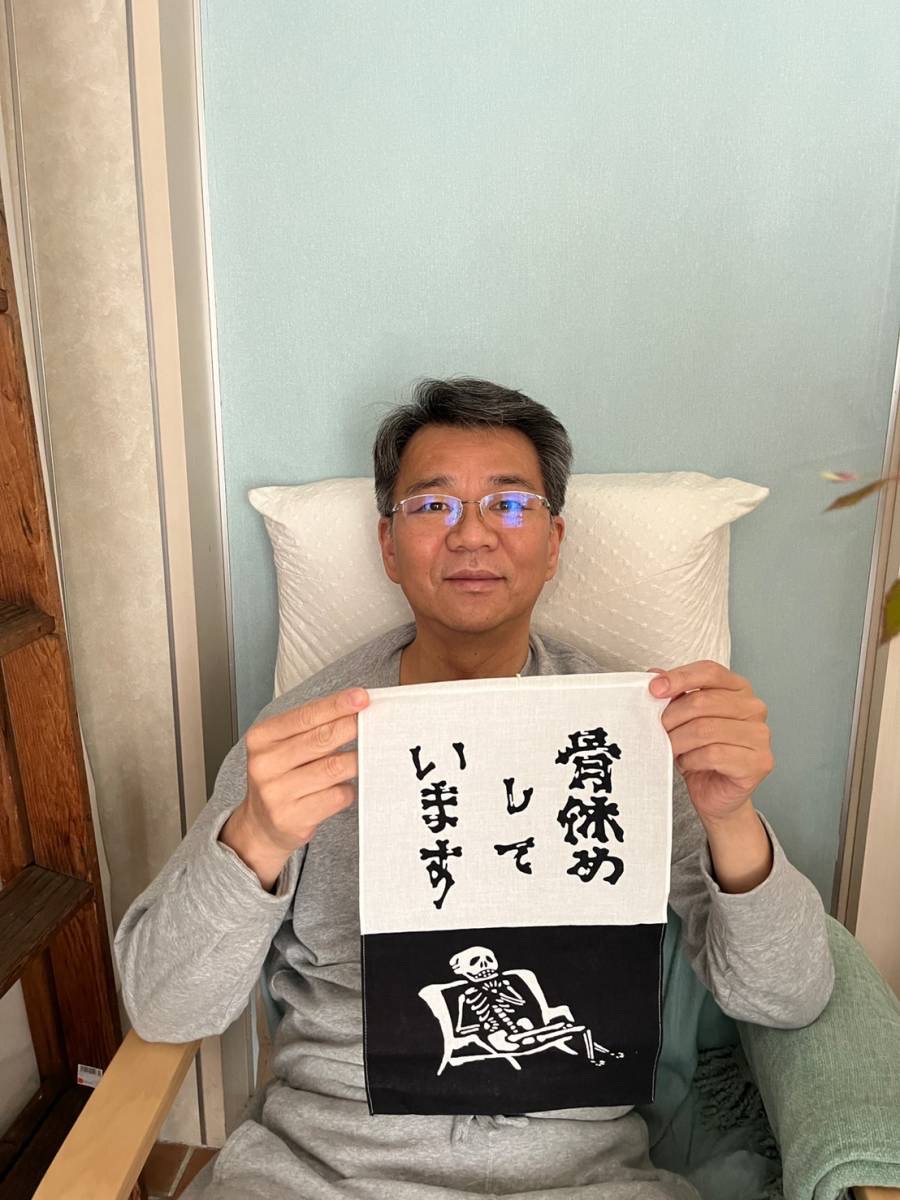 骨休め
して
います